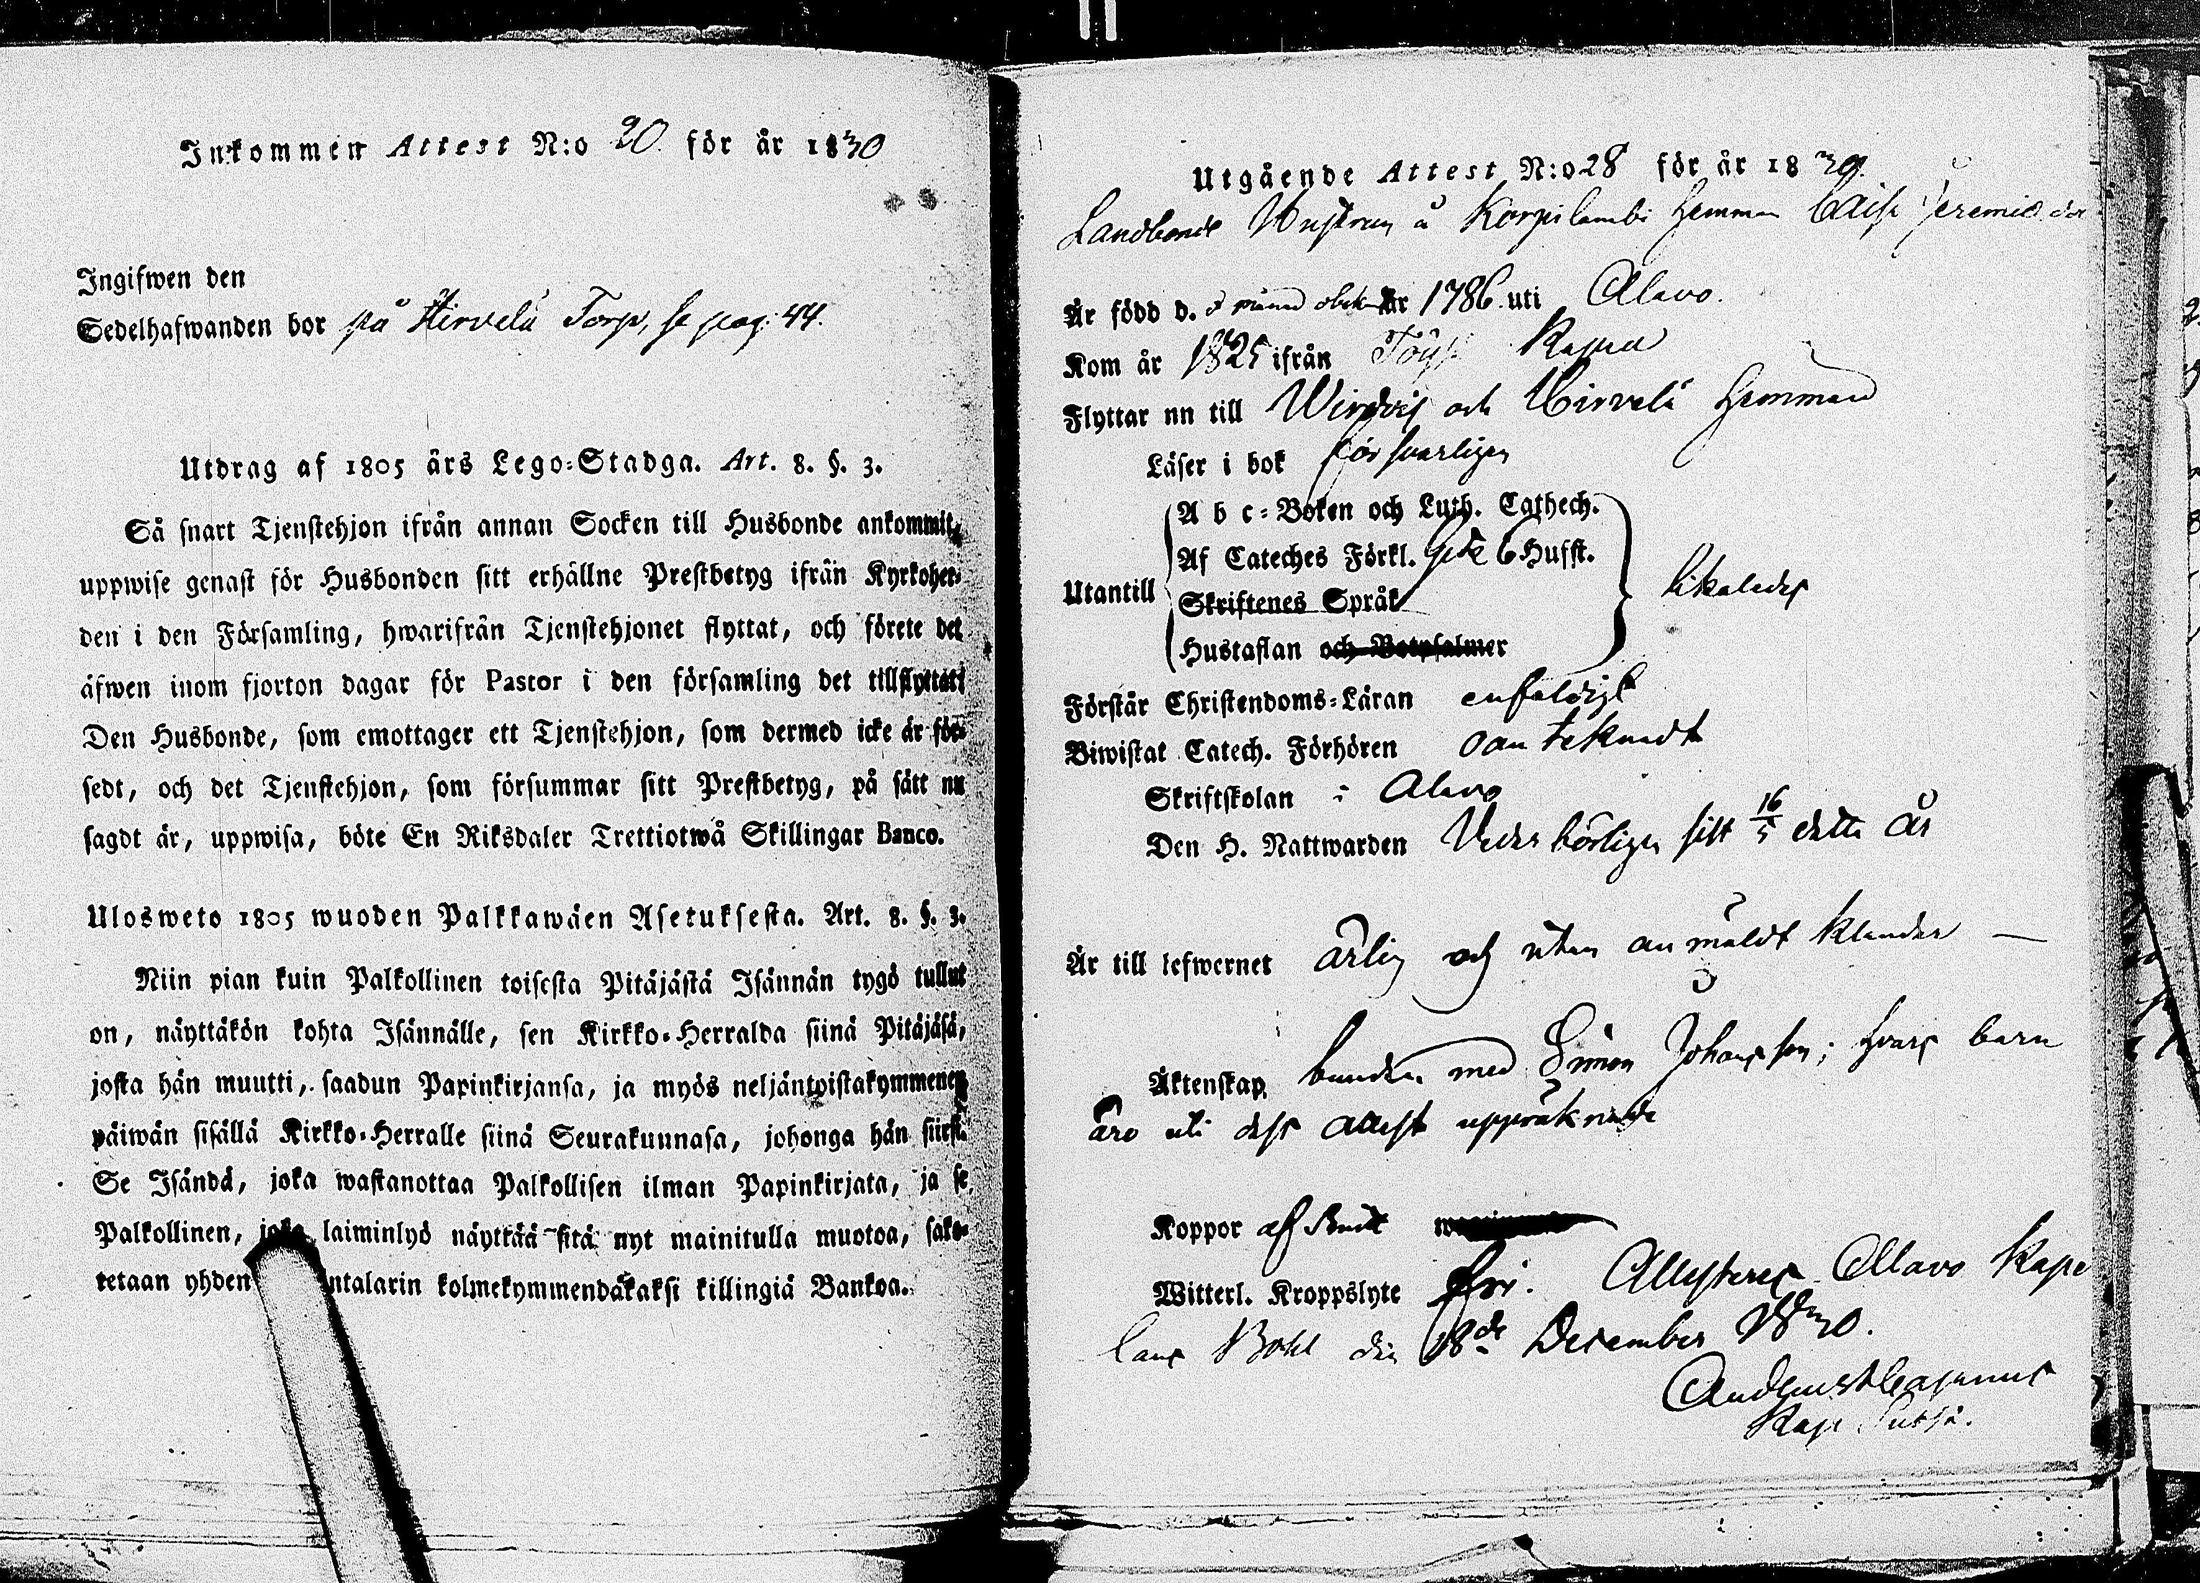 Inkommen Attest N:o 20 för år 1830
Ingifwen den
Sedelhafwanden bor på Hirvelä Torp, se pag: 44.
Utdrag af 1805 års Lego-Stadga. Art. 8. §. 3.
Så snart Tjenstehjon ifrån annan Socken till Husbonde ankommit,
uppwise genast för Husbonden sitt erhållne Prestbetyg ifrån Kyrkoher-
den i den Församling, hwarifrån Tjenstehjonet flyttat, och förete det
äfwen inom fjorton dagar för Pastor i den församling det tillflyttat.
Den Husbonde, som emottager ett Tjenstehjon, som dermed icke är för-
sedt, och det Tjenstehjon, som försummar sitt Prestbetyg, på sätt nu
sagdt är, uppwisa, böte En Riksdaler Trettiotwå Skillingar Banco.
Ulosweto 1805 wuoden Palkkawäen Asetuksesta. Art. 8. §. 3.
Niin pian kuin Palkollinen toisesta Pitäjästä Isännän tygö tullut
on, näyttäkön kohta Isännälle, sen Kirkko-Herralda siinä Pitäjäsä,
josta hän muutti, saadun Papinkirjansa, ja myös neljäntoistakymmenen
päiwän sisällä Kirkko-Herralle siinä Seurakunnasa, johonga hän siirsi.
Se Isändä, joka wastanottaa Palkollisen ilman Papinkirjata, ja se
Palkollinen, joka laiminlyö näyttää sitä nyt mainitulla muotoa, sako-
tetaan yhden ntalarin kolmekymmendäkaksi killingiä Bankoa.
Utgående Attest N:o 28 för år 1830.
Landbonde Hustrun å Korpilambi Hemman Caisa Jeremiæ dr
Är född d. månd obek. år 1786 uti Alavo.
Kom år 1825 ifrån Töysä Kapell
Flyttar nn till Wirdois och Hirvelä Hemman
Läser i bok försvarligen
Utantill
A b c-Boken och Luth. Cathech.
Af Cateches Förkl. 6 Hufst.
Skriftenes Språk
Hustaflan och Botpsalmer
likaledes
Förstår Christendoms-Läran enfaldigt
Biwistat Catech. Förhören oanteknadt
Skriftskolan i Alavo
Den H. Nattwarden Vederbörligen sist 16/5 detta År
Är till lefwernet ärlig och utan anmäldt klander —
Äktenskap bunden med Simon Johansson; hvars barn
äro uti dess attest uppräknade
Koppor af
Witterl. Kroppslyte fri. Attesteras Alavo Kape
lans Bohl den 18de December 1830.
Cajanus
Kap.